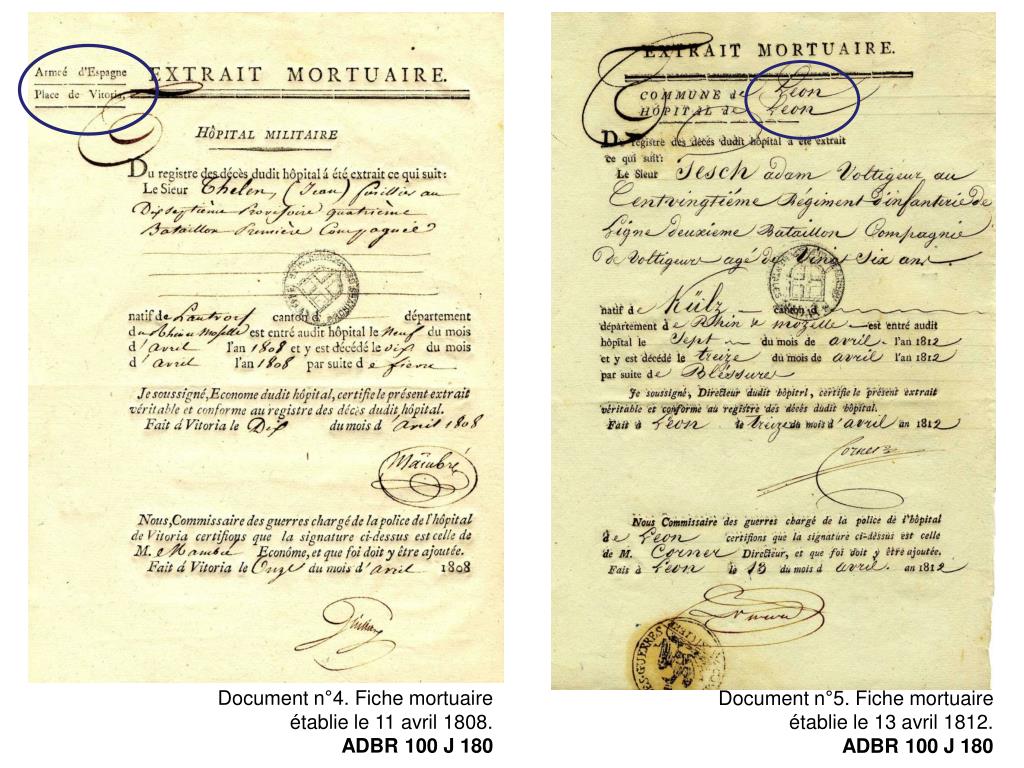 Armeé d'Espagne
Place de Vitoria,
EXTRAIT MORTUAIRE.
HÔPITAL MILITAIRE
Du registre des décès dudit hôpital á été extrait ce qui suit:
Le Sieur Thelen, (Jean) fusillier au
Dixseptième Provisoire quatrième
Bataillon Première Compagnie
natif de canton d département
du Rhin et Moselle est entré audit hôpital le Neuf du mois
d'avril l'an 1808 et y est décédé le dix du mois
d'avril l'an 1808 par suite de fievre
Je soussigné, Econome dudit hôpital, certifie le présent extrait
véritable et conforme au registre des décès dudit hôpital.
Fait d Vitoria le Dix du mois d'avril 1808
Maimbré
Nous, Commissaire des guerres chargé de la police de l'hôpital
de Vitoria certifions que la signature ci-dessus est celle de
M. Económe, et que foi doit y être ajoutée.
Fait d Vitoria le Onze du mois d'avril 1808
Document n°4. Fiche mortuaire
établie le 11 avril 1808.
ADBR 100 J 180
EXTRAIT MORTUAIRE.
COMMUNE de Leon
HÔPITAL de Leon
Du registre des décès dudit hôpital a été extrait
ce qui suit:
Le Sieur Tesch adam Voltigeur au
Centvingtiéme Régiment d'infanterie de
Ligne deuxieme Bataillon Compagnie
De Voltigeur agé de Vingt Six ans
natif de Külz canton d
département de Rhin & mozelle est entré audit
hôpital le Sept du mois de avril l'an 1812
et y est décédé le treize du mois de avril l'an 1812
par suite de Bléssure
Je soussigné, Directeur dudit hôpitrl, certifie le présent extrait
véritable et conforme au registre des décès dudit hôpital.
Fait d Leon le treize du mois d'avril an 1812
Corner
Nous Commissaire des guerres chargé de la police de l'hôpital
de Leon certifions que la signature ci-dessus est celle
de M. Corner Directeur, et que foi doit y être ajoutée.
Fais d Leon le 13 du mois d avril. an 1812
Document n°5. Fiche mortuaire
établie le 13 avril 1812.
ADBR 100 J 180